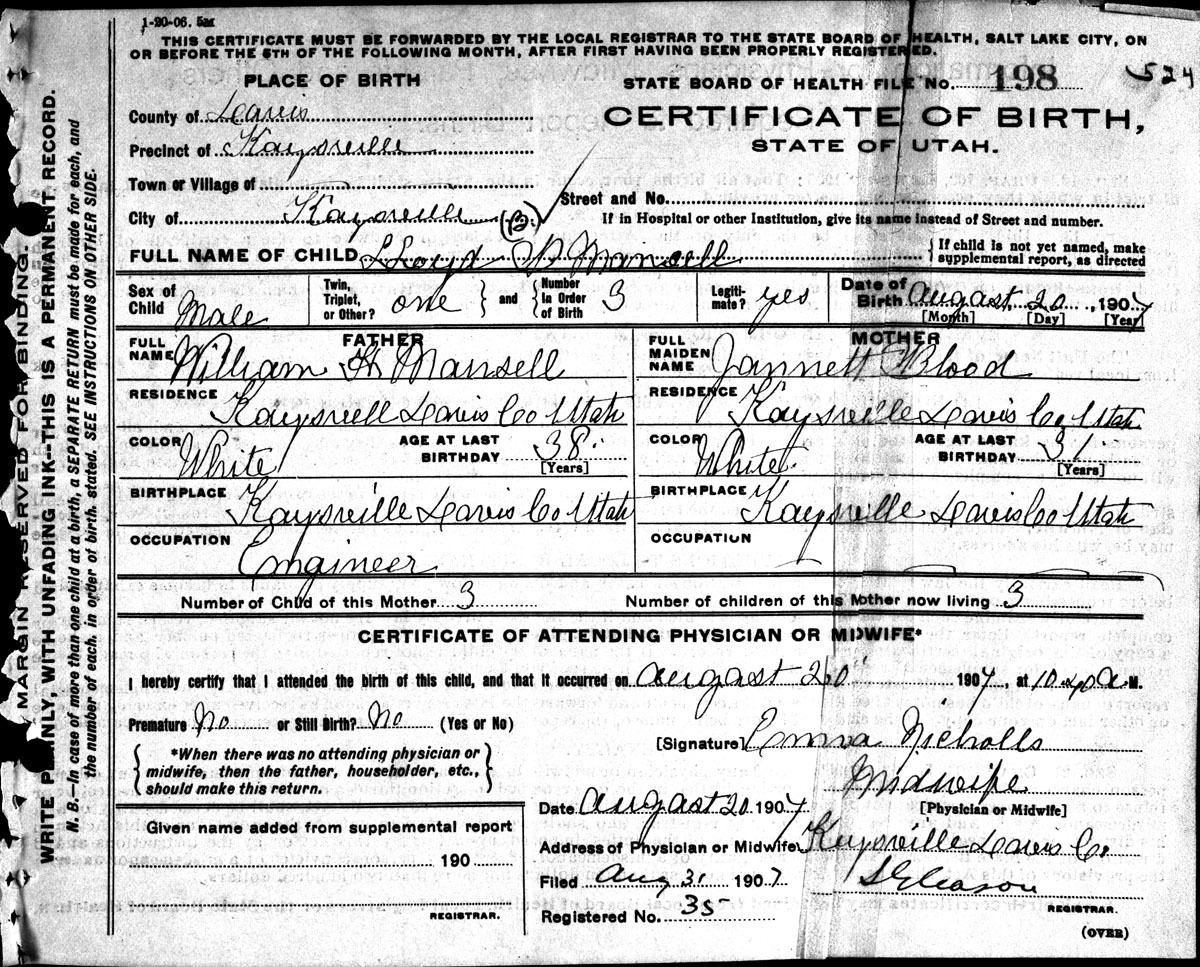 1-20-06. 5M
THIS CERTIFICATE MUST BE FORWARDED BY THE LOCAL REGISTRAR TO THE STATE BOARD OF HEALTH, SALT LAKE CITY, ON
OR BEFORE THE 5TH OF THE FOLLOWING MONTH, AFTER FIRST HAVING BEEN PROPERLY REGISTERED.
PLACE OF BIRTH
STATE BOARD OF HEALTH FILE No. 198 524
County of Davis
CERTIFICATE OF BIRTH,
Precinct of Kaysville
STATE OF UTAH.
Town or Village of
Street and No.
City of Kaysville (B.)
If in Hospital or other Institution, give its name instead of Street and number.
FULL NAME OF CHILD Lloyd B Mansell
If child is not yet named, make
supplemental report, as directed
Sex of Child Male Twin, Triplet, or Other? one and Number in Order of Birth 3 Legiti- mate? yes Date of Birth August 20, 1907
[Month] [Day] [Year]
FATHER
FULL NAME William H Mansell
RESIDENCE Kaysvill Davis Co Utah
COLOR White AGE AT LAST BIRTHDAY 38
[Years]
BIRTHPLACE Kaysville Davis Co Utah
OCCUPATION
Engineer
MOTHER
FULL MAIDEN NAME Jannett Blood
RESIDENCE Kaysville Davis Co Utah
COLOR White AGE AT LAST BIRTHDAY 31
[Years]
BIRTHPLACE Kaysville Davis Co Utah
OCCUPATION
Number of Child of this Mother 3 Number of children of this Mother now living 3
CERTIFICATE OF ATTENDING PHYSICIAN OR MIDWIFE*
I hereby certify that I attended the birth of this child, and that it occurred on augast 20" 1907, at 10.40 a M.
Premature No or Still Birth? No (Yes or No)
*When there was no attending physician or
midwife, then the father, householder, etc.,
should make this return.
[Signature] Emma Nicholls
Midwife
[Physician or Midwife]
Date August 20 1907
Address of Physician or Midwife Kaysville Davis Co
Given name added from supplemental report
190
REGISTRAR.
Filed Aug 31 1907
Registered No. 35
S Gleason
REGISTRAR.
(OVER)
MARGIN RESERVED FOR BINDING.
WRITE PLAINLY, WITH UNFADING INK—THIS IS A PERMANENT RECORD.
N. B.—In case of more than one child at a birth, a SEPARATE RETURN must be made for each, and
the number of each, in order of birth, stated. SEE INSTRUCTIONS ON OTHER SIDE.